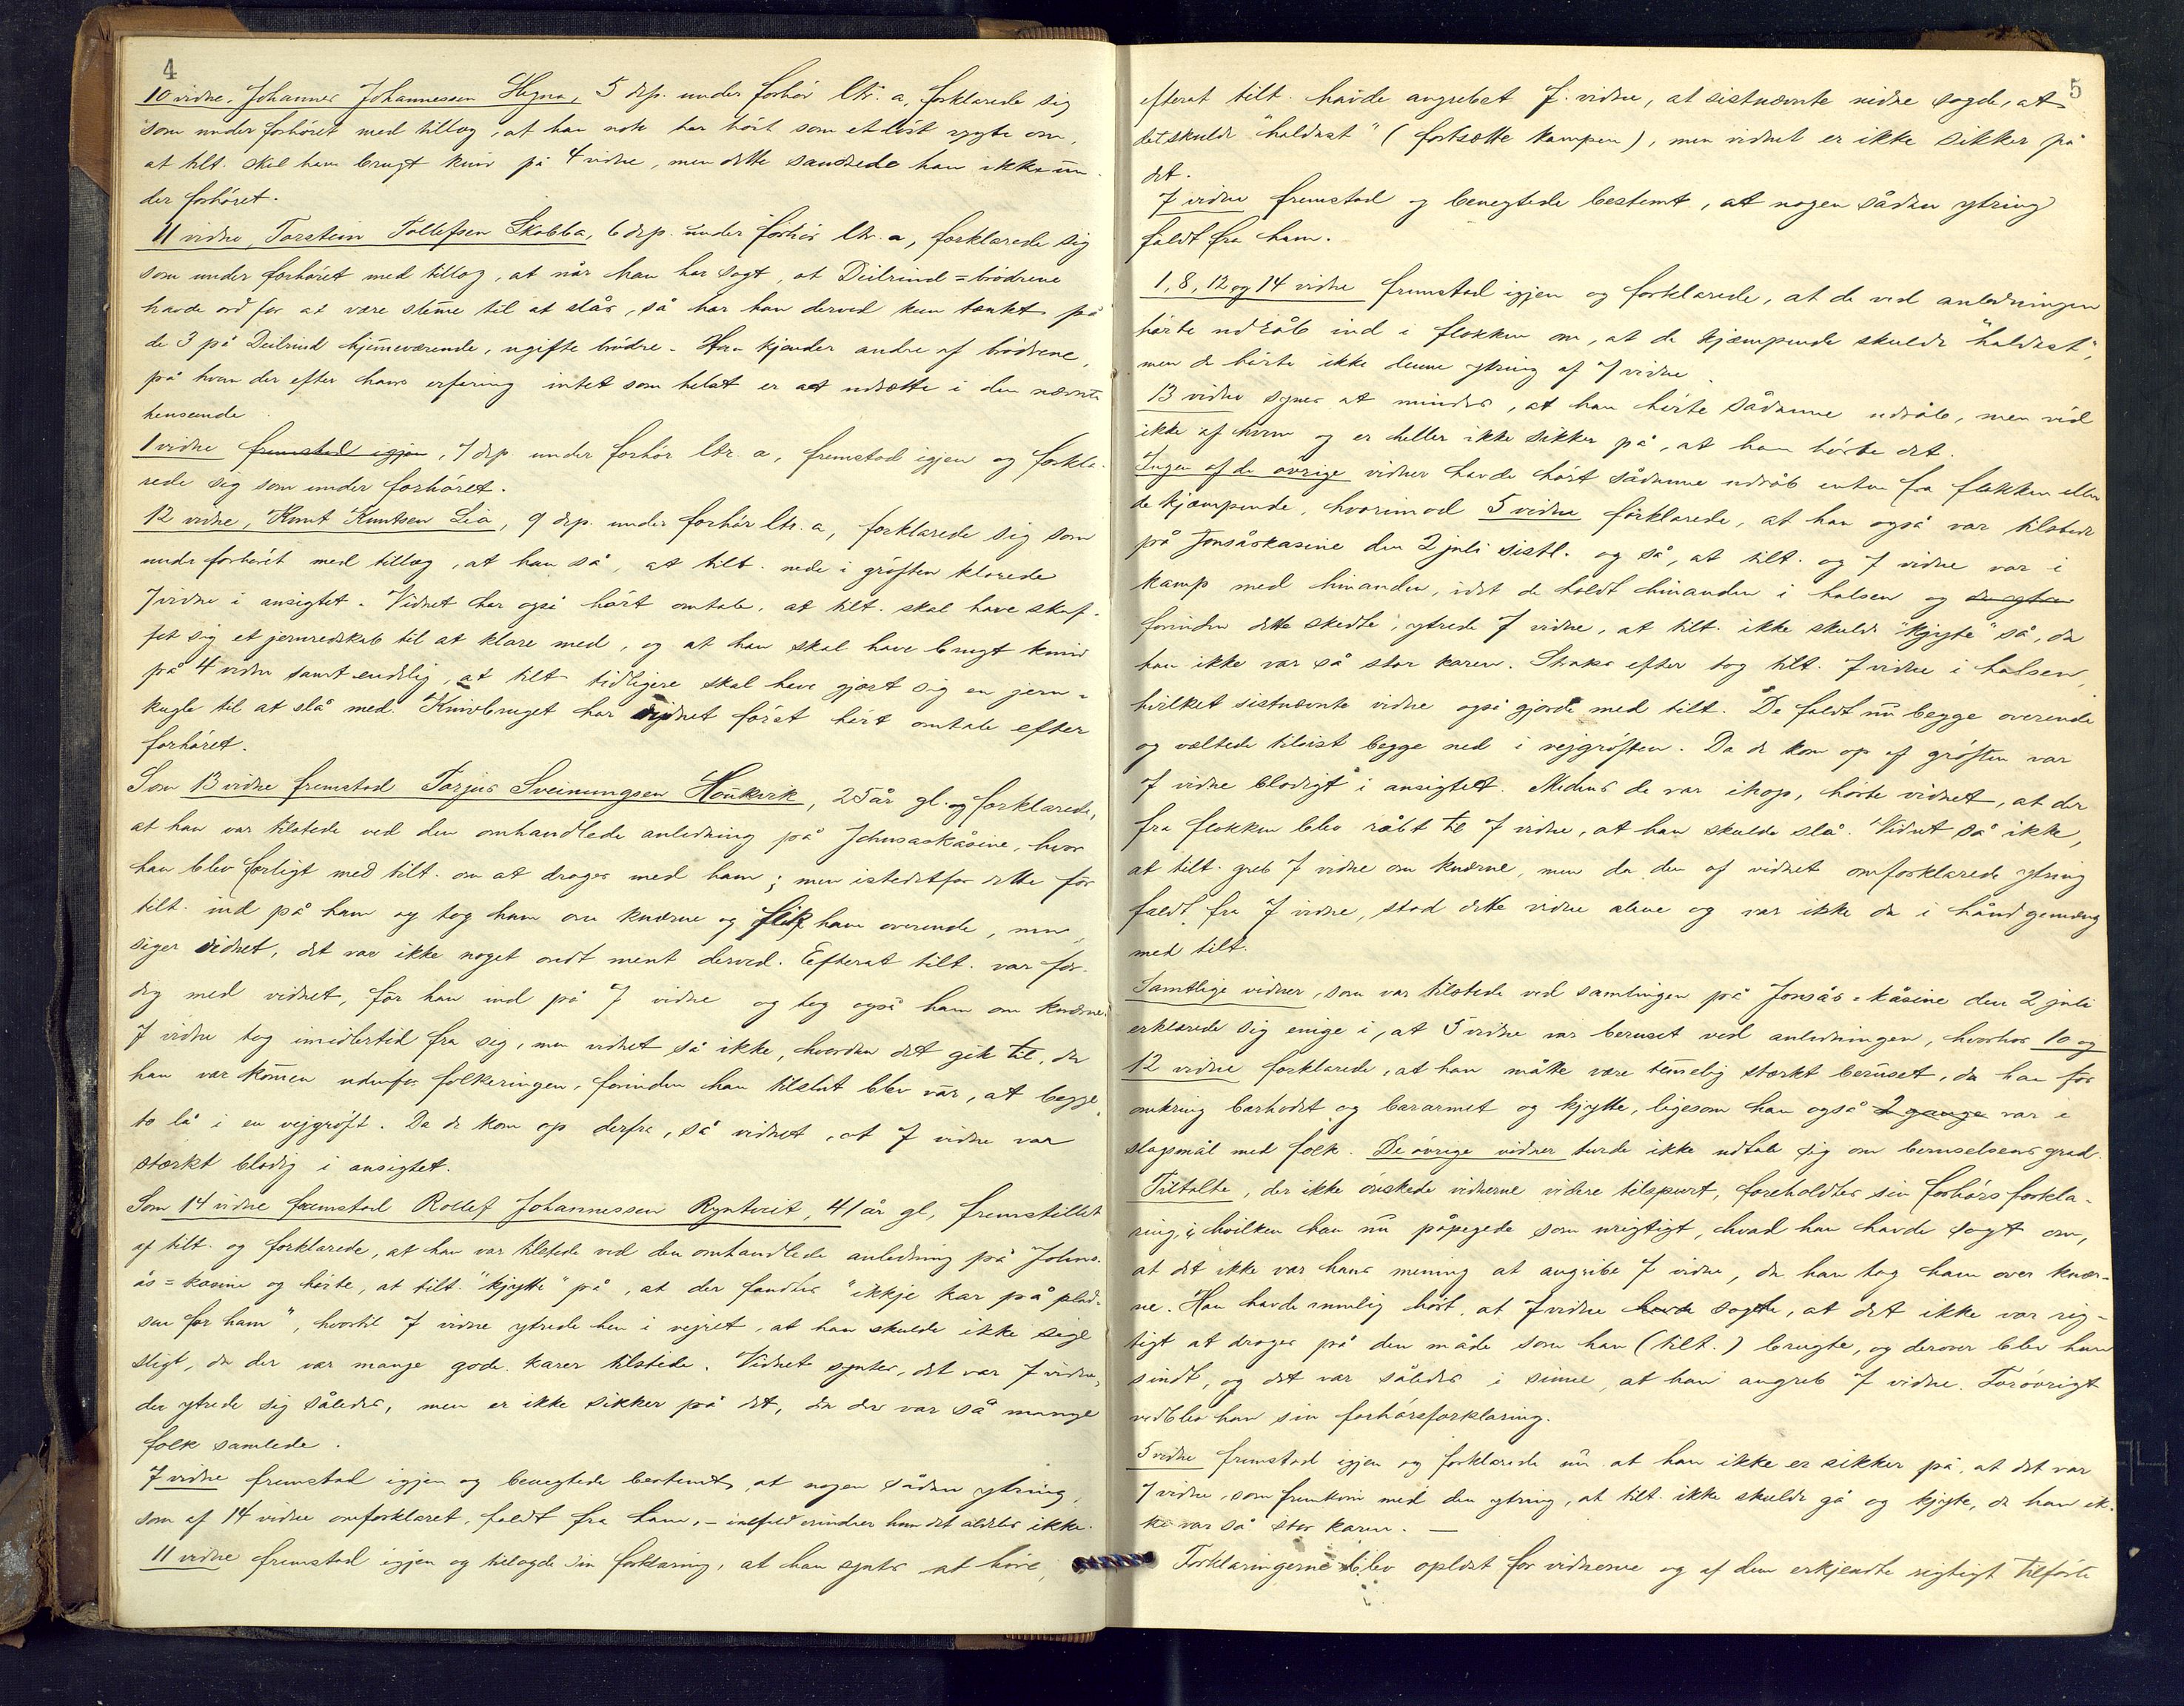 4
10 vidne, Johannes Johannessen Hegna, 5 dep. under forhör ltr. a, forklarede sig
som under forhöret med tillæg, at han nok har hört som et löst rygte om,
at tilt. skal have brugt kniv på 4 vidne, men dette sandsede han ikke un-
der forhöret.
11 vidne, Torstein Tollefsen Skobba, 6 dep. under forhör ltr. a, forklarede sig
som under forhöret med tillæg, at når han har sagt, at Deilrind=brödrene
havde ord for at være slemme til at slås, så har han derved kun tænkt på
de 3 på Deilrind hjemmeværende, ugifte brödre. Han kjender andre af brödrene,
på hvem der efter hans erfaring intet som helst er at udsætte i den nævnte
henseende.
1 vidne fremstod igjen, 7 dep under forhör ltr. a, fremstod igjen og forkla-
rede sig som under forhöret.
12 vidne, Knut Knutsen Lia, 9 dep. under forhör ltr. a, forklarede sig som
under forhöret med tillæg, at han så, at tilt. nede i gröften klorede
7 vidne i ansigtet. Vidnet har også hört omtale, at tilt. skal have skaf-
fet sig et jernredskab til at klore med, og at han skal have brugt kniv
på 4 vidne samt endelig, at tilt. tidligere skal have gjort sig en jern-
kugle til at slå med. Knivbruget har vidnet först hört omtale efter
forhöret.
Som 13 vidne fremstod Torjus Sveinungsen Haukvik, 25 år gl. og forklarede,
at han var tilstede ved den omhandlede anledning på Johnsaskåsine, hvor
han blev forligt med tilt. om at drages med ham; men istedetfor dette för
tilt. ind på ham og tog ham om knæerne og fik ham overende, men
siger vidnet, det var ikke noget ondt ment derved. Efterat tilt. var fær-
dig med vidnet, för han ind på 7 vidne og tog også ham om knæerne.
7 vidne tog imidlertid fra sig, men vidnet så ikke, hvordan det gik til, da
han var kommen udenfor folkeringen, forinden han tilslut blev var, at begge
to lå i en vejgröft. Da de kom op derfra, så vidnet, at 7 vidne var
stærkt blodig i ansigtet.
Som 14 vidne fremstod Rollef Johannessen Ryntveit, 41 år gl, fremstillet
af tilt. og forklarede, at han var tilstede ved den omhandlede anledning på Johns-
ås=kasine og hörte, at tilt. "kjytte" på, at der fandtes "ikkje kar på plad-
sen for ham", hvortil 7 vidne ytrede hen i vejret, at han skulde ikke sige
sligt, da der var mange gode karer tilstede. Vidnet syntes, det var 7 vidne,
der ytrede sig således, men er ikke sikker på det, da der var så mange
folk samlede.
7 vidne fremstod igjen og benegtede bestemt, at nogen sådan ytring,
som af 14 vidne omforklaret, faldt fra ham, – ialfald erindrer han det aldeles ikke.
11 vidne fremstod igjen og tilagde sin forklaring, at han syntes at höre,
5
efterat tilt. havde angrebet 7. vidne, at sistnævnte vidne sagde, at
det skulde "haldast" (fortsætte kampen), men vidnet er ikke sikker på
det.
7 vidne fremstod og benegtede bestemt, at nogen sådan ytring
faldt fra ham.
1, 8, 12 og 14 vidne fremstod igjen og forklarede, at de ved anledningen
hörte udråb ind i flokken om, at de kjæmpende skulde "haldast",
men de hörte ikke denne ytring af 7 vidne.
13 vidne synes at mindes, at han hörte sådanne udråb, men véd
ikke af hvem og er heller ikke sikker på, at han hörte det.
Ingen af de övrige vidner havde hört sådanne udråb enten fra flokken eller
de kjæmpende, hvorimod 5 vidne forklarede, at han også var tilstede
på Jonsåskasine den 2 juli sistl. og så, at tilt. og 7 vidne var i
kamp med hinanden, idet de holdt hinanden i halsen og
forinden dette skedte, ytrede 7 vidne, at tilt. ikke skulde "kjyte" så, da
han ikke var så stor karen. Straks efter tog tilt. 7 vidne i halsen,
hvilket sistnævnte vidne også gjorde med tilt. De faldt nu begge overende
og væltede tilsist begge ned i vejgröften. Da de kom op af gröften var
7 vidne blodigt i ansigtet. Medens de var ihop, hörte vidnet, at der
fra flokken blev råbt til 7 vidne, at han skulde slå. Vidnet så ikke,
at tilt. greb 7 vidne om knærne, men da den af vidnet omforklarede ytring
faldt fra 7 vidne, stod dette vidne alene og var ikke da i håndgemæng
med tilt.
Samtlige vidner, som var tilstede ved samlingen på Jonsås-kåsine den 2 juli
erklærede sig enige i, at 5 vidne var beruset ved anledningen, hvorhos 10 og
12 vidne forklarede, at han måtte være temmelig stærkt beruset, da han för
omkring barhodet og bararmet og kjytte, ligesom han også 2 gange var i
slagsmål med folk. De övrige vidner turde ikke udtale sig om beruselsens grad.
Tiltalte, der ikke önskede vidnerne videre tilspurt, foreholdtes sin forhörsforkla-
ring, i hvilken han nu påpegede som urigtigt, hvad han havde sagt om,
at det ikke var hans mening at angribe 7 vidne, da han tog ham over knær-
ne. Han havde nemlig hört, at 7 vidne havde sagte, at det ikke var rig-
tigt at drages på den måde som han (tilt.) brugte, og derover blev han
sindt, og det var således i sinne, at han angreb 7 vidne. Forövrigt
vedblev han sin forhörsforklaring.
5 vidne fremstod igjen og forklarede nu at han ikke er sikker på, at det var
7 vidne, som fremkom med den ytring, at tilt. ikke skulde gå og kjyte, da han ik-
ke var så stor karen. –
Forklaringerne blev oplæst for vidnerne og af dem erkjendte rigtigt tilförte